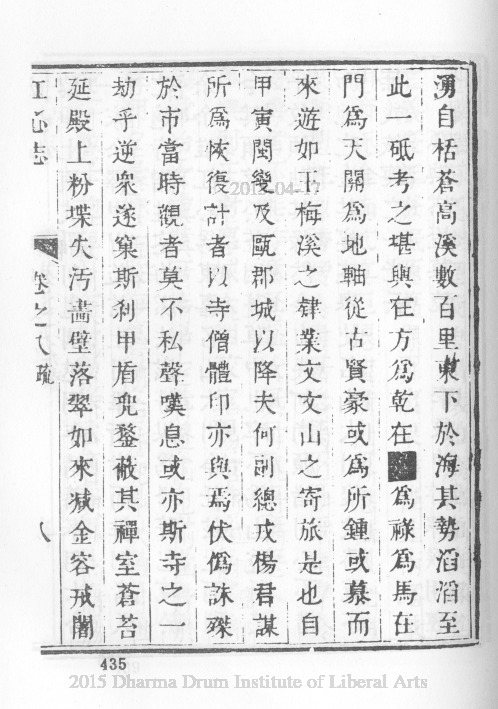 湧自栝蒼高溪數百里東下於海其勢滔滔至
此一砥考之堪輿在方爲乾在爲祿爲馬在
門爲天關爲地軸從古賢豪或爲所鍾或慕而
來遊如王梅溪之肄業文文山之寄旅是也自
甲寅閩變及甌郡城以降夫何副總戎楊君謀
所爲恢復計者以寺僧體印亦與焉伏僞誅殛
於市當時觀者莫不私聲嘆息或亦斯寺之一
劫乎逆衆遂窠斯刹甲盾兜鍪蔽其禪室蒼苔
延殿上粉堞矢汚畵壁落翠如來減金容戒闍
江心志
卷之八
疏
八
435
2015-04-17
2015 Dharma Drum Institute of Liberal Arts